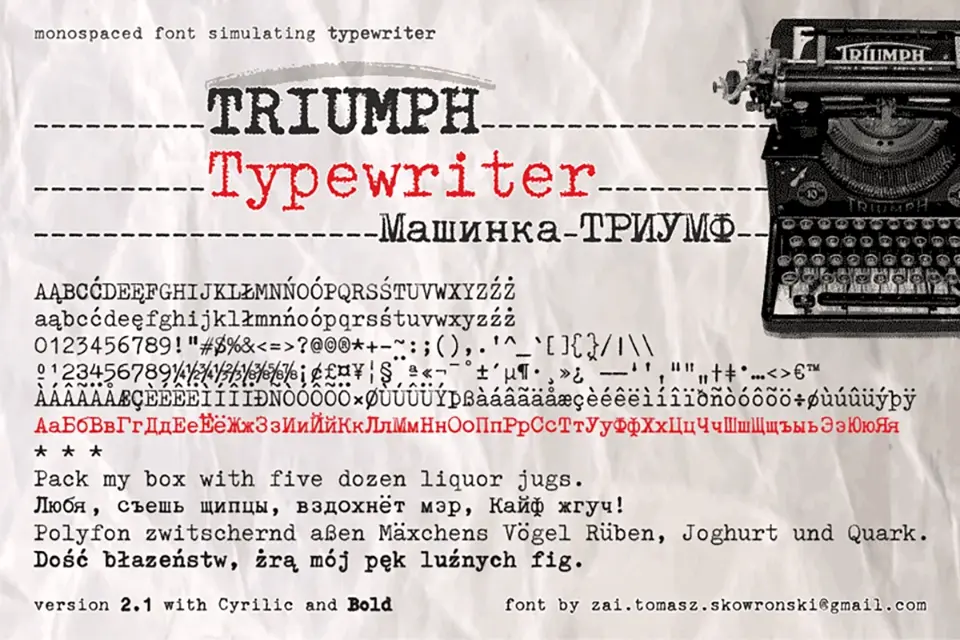 monospaced font simulating typewriter
TRIUMPH
Typewriter
Машинка ТРИУМФ
TRIUMPH
TRIUMPH
AĄBCĆDEĘFGHIJKLŁMNŃOÓPQRSŚTUVWXYZŹŻ
aąbcćdeęfghijklłmnńoópqrsśtuvwxyzźż
0123456789!"#$%&<=>?@©®*+-~:;(),.'^_`[]{}/|\\
º¹23456789¼½¾ ¡¢£¤¥¦§¨ª«¬¯°±´µ¶·¸»¿ –—‘’‚“”„†‡•…<>€™
ÀÁÂÃÄÅÆÇÈÉÊËÌÍÎÏÐÑÒÓÔÕÖ×ØÙÚÛÜÝþßàáâãäåæçèéêëìíîïðñòóôõö÷øùúûüýþÿ
АаБбВвГгДдЕеЁёЖжЗзИиЙйКкЛлМмНнОоПпРрСсТтУуФфХхЦцЧчШшЩщъыьЭэЮюЯя
* * *
Pack my box with five dozen liquor jugs.
Любя, съешь щипцы, вздохнёт мэр, Кайф жгуч!
Polyfon zwitschernd aßen Mäxchens Vögel Rüben, Joghurt und Quark.
Dość błazeństw, żrą mój pęk luźnych fig.
version 2.1 with Cyrilic and Bold
font by zai.tomasz.skowronski@gmail.com